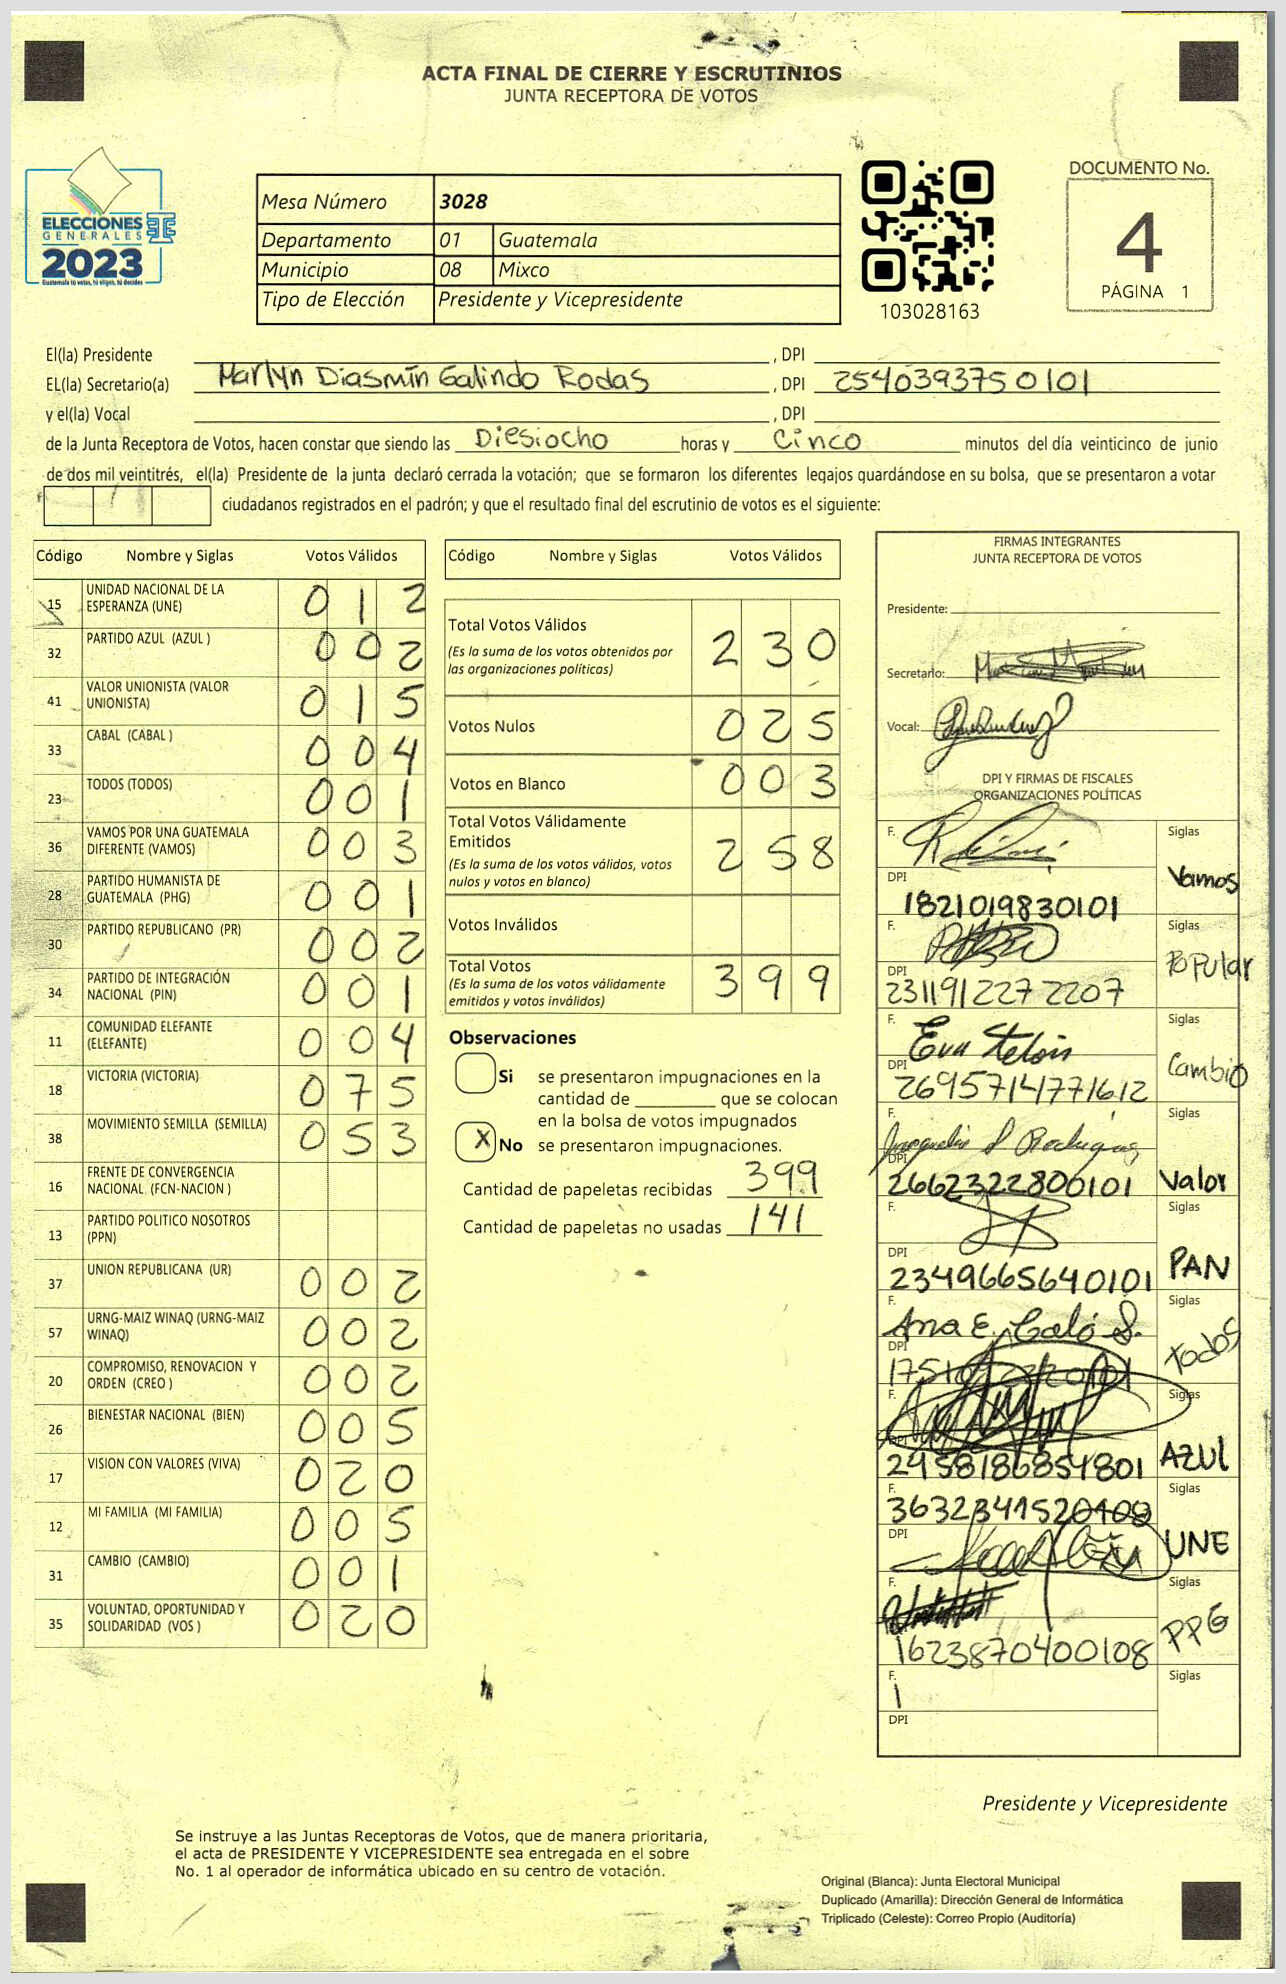 ACTA FINAL DE CIERRE Y ESCRUTINIOS
JUNTA RECEPTORA DE VOTOS
ELECCIONES
GENERALES
2023
Guatemala tú votas, tú eliges, tú decides
Mesa Número 3028
Departamento 01 Guatemala
Municipio 08 Mixco
Tipo de Elección Presidente y Vicepresidente
103028163
DOCUMENTO No.
4
PÁGINA 1
El(la) Presidente , DPI
EL(la) Secretario(a) Marlyn Diasmín Galindo Rodas , DPI 2540393750101
y el(la) Vocal , DPI
de la Junta Receptora de Votos, hacen constar que siendo las Diesiocho horas y Cinco minutos del día veinticinco de junio
de dos mil veintitrés, el(la) Presidente de la junta declaró cerrada la votación; que se formaron los diferentes legajos guardándose en su bolsa, que se presentaron a votar
ciudadanos registrados en el padrón; y que el resultado final del escrutinio de votos es el siguiente:
Código Nombre y Siglas Votos Válidos
15 UNIDAD NACIONAL DE LA ESPERANZA (UNE) 012
32 PARTIDO AZUL (AZUL ) 002
41 VALOR UNIONISTA (VALOR UNIONISTA) 015
33 CABAL (CABAL ) 004
23 TODOS (TODOS) 001
36 VAMOS POR UNA GUATEMALA DIFERENTE (VAMOS) 003
28 PARTIDO HUMANISTA DE GUATEMALA (PHG) 001
30 PARTIDO REPUBLICANO (PR) 002
34 PARTIDO DE INTEGRACIÓN NACIONAL (PIN) 001
11 COMUNIDAD ELEFANTE (ELEFANTE) 004
18 VICTORIA (VICTORIA) 075
38 MOVIMIENTO SEMILLA (SEMILLA) 053
16 FRENTE DE CONVERGENCIA NACIONAL (FCN-NACION )
13 PARTIDO POLITICO NOSOTROS (PPN)
37 UNION REPUBLICANA (UR) 002
57 URNG-MAIZ WINAQ (URNG-MAIZ WINAQ) 002
20 COMPROMISO, RENOVACION Y ORDEN (CREO ) 002
26 BIENESTAR NACIONAL (BIEN) 005
17 VISION CON VALORES (VIVA) 020
12 MI FAMILIA (MI FAMILIA) 005
31 CAMBIO (CAMBIO) 001
35 VOLUNTAD, OPORTUNIDAD Y SOLIDARIDAD (VOS ) 020
Código Nombre y Siglas Votos Válidos
Total Votos Válidos 230
(Es la suma de los votos obtenidos por
las organizaciones políticas)
Votos Nulos 025
Votos en Blanco 003
Total Votos Válidamente
Emitidos 258
(Es la suma de los votos válidos, votos
nulos y votos en blanco)
Votos Inválidos
Total Votos 399
(Es la suma de los votos válidamente
emitidos y votos inválidos)
Observaciones
Si se presentaron impugnaciones en la
cantidad de que se colocan
en la bolsa de votos impugnados
X No se presentaron impugnaciones.
Cantidad de papeletas recibidas 399
Cantidad de papeletas no usadas 141
FIRMAS INTEGRANTES
JUNTA RECEPTORA DE VOTOS
Presidente:
Secretario:
Vocal:
DPI Y FIRMAS DE FISCALES
ORGANIZACIONES POLÍTICAS
F. Siglas
DPI Vamos
1821019830101
F. Siglas
DPI Popular
2311912272207
F. Eva Siglas
DPI Cambio
2695714771612
F. Siglas
DPI
2662322800101 Valor
F. Siglas
DPI
2349665640101 PAN
F. Ana E. Caló S. Siglas
DPI Todos
F. Siglas
DPI
2958186854801 AZUL
F. Siglas
DPI UNE
F. Siglas
1623870400108 PPG
F. Siglas
DPI
Presidente y Vicepresidente
Se instruye a las Juntas Receptoras de Votos, que de manera prioritaria,
el acta de PRESIDENTE Y VICEPRESIDENTE sea entregada en el sobre
No. 1 al operador de informática ubicado en su centro de votación.
Original (Blanca): Junta Electoral Municipal
Duplicado (Amarilla): Dirección General de Informática
Triplicado (Celeste): Correo Propio (Auditoría)